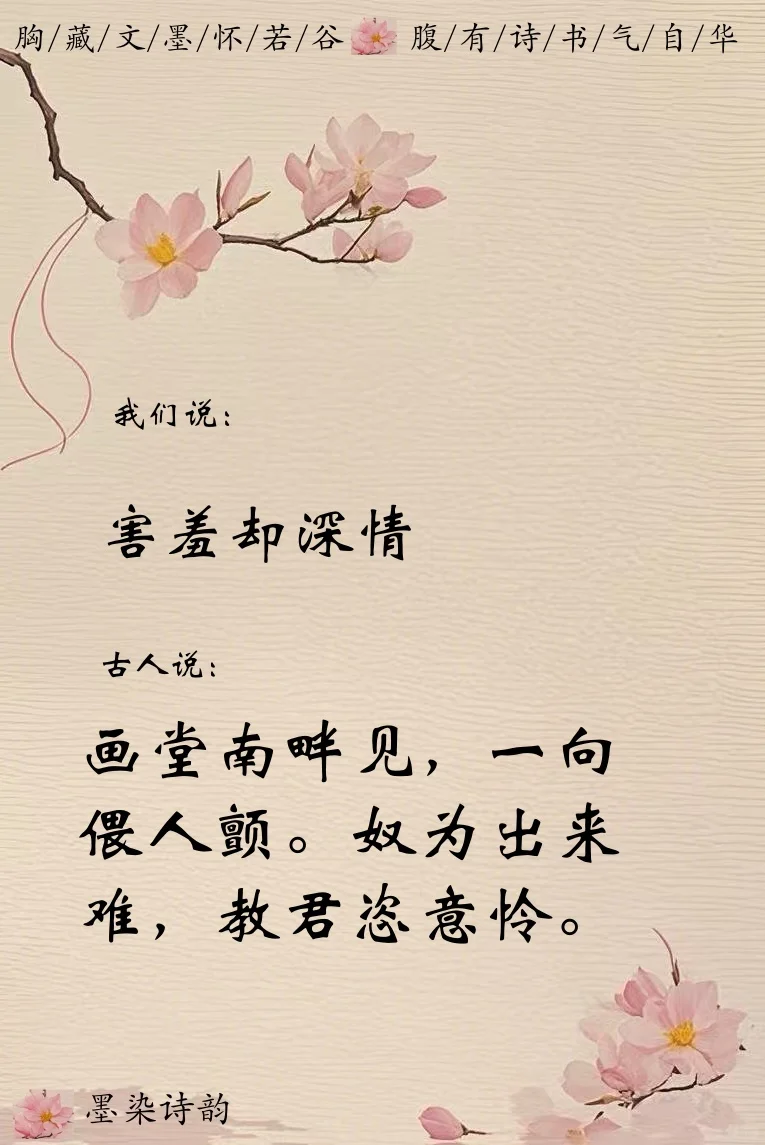 胸/藏/文/墨/怀/若/谷 腹/有/诗/书/气/自/华
我们说：
害羞却深情
古人说：
画堂南畔见，一向
偎人颤。奴为出来
难，教君恣意怜。
墨染诗韵